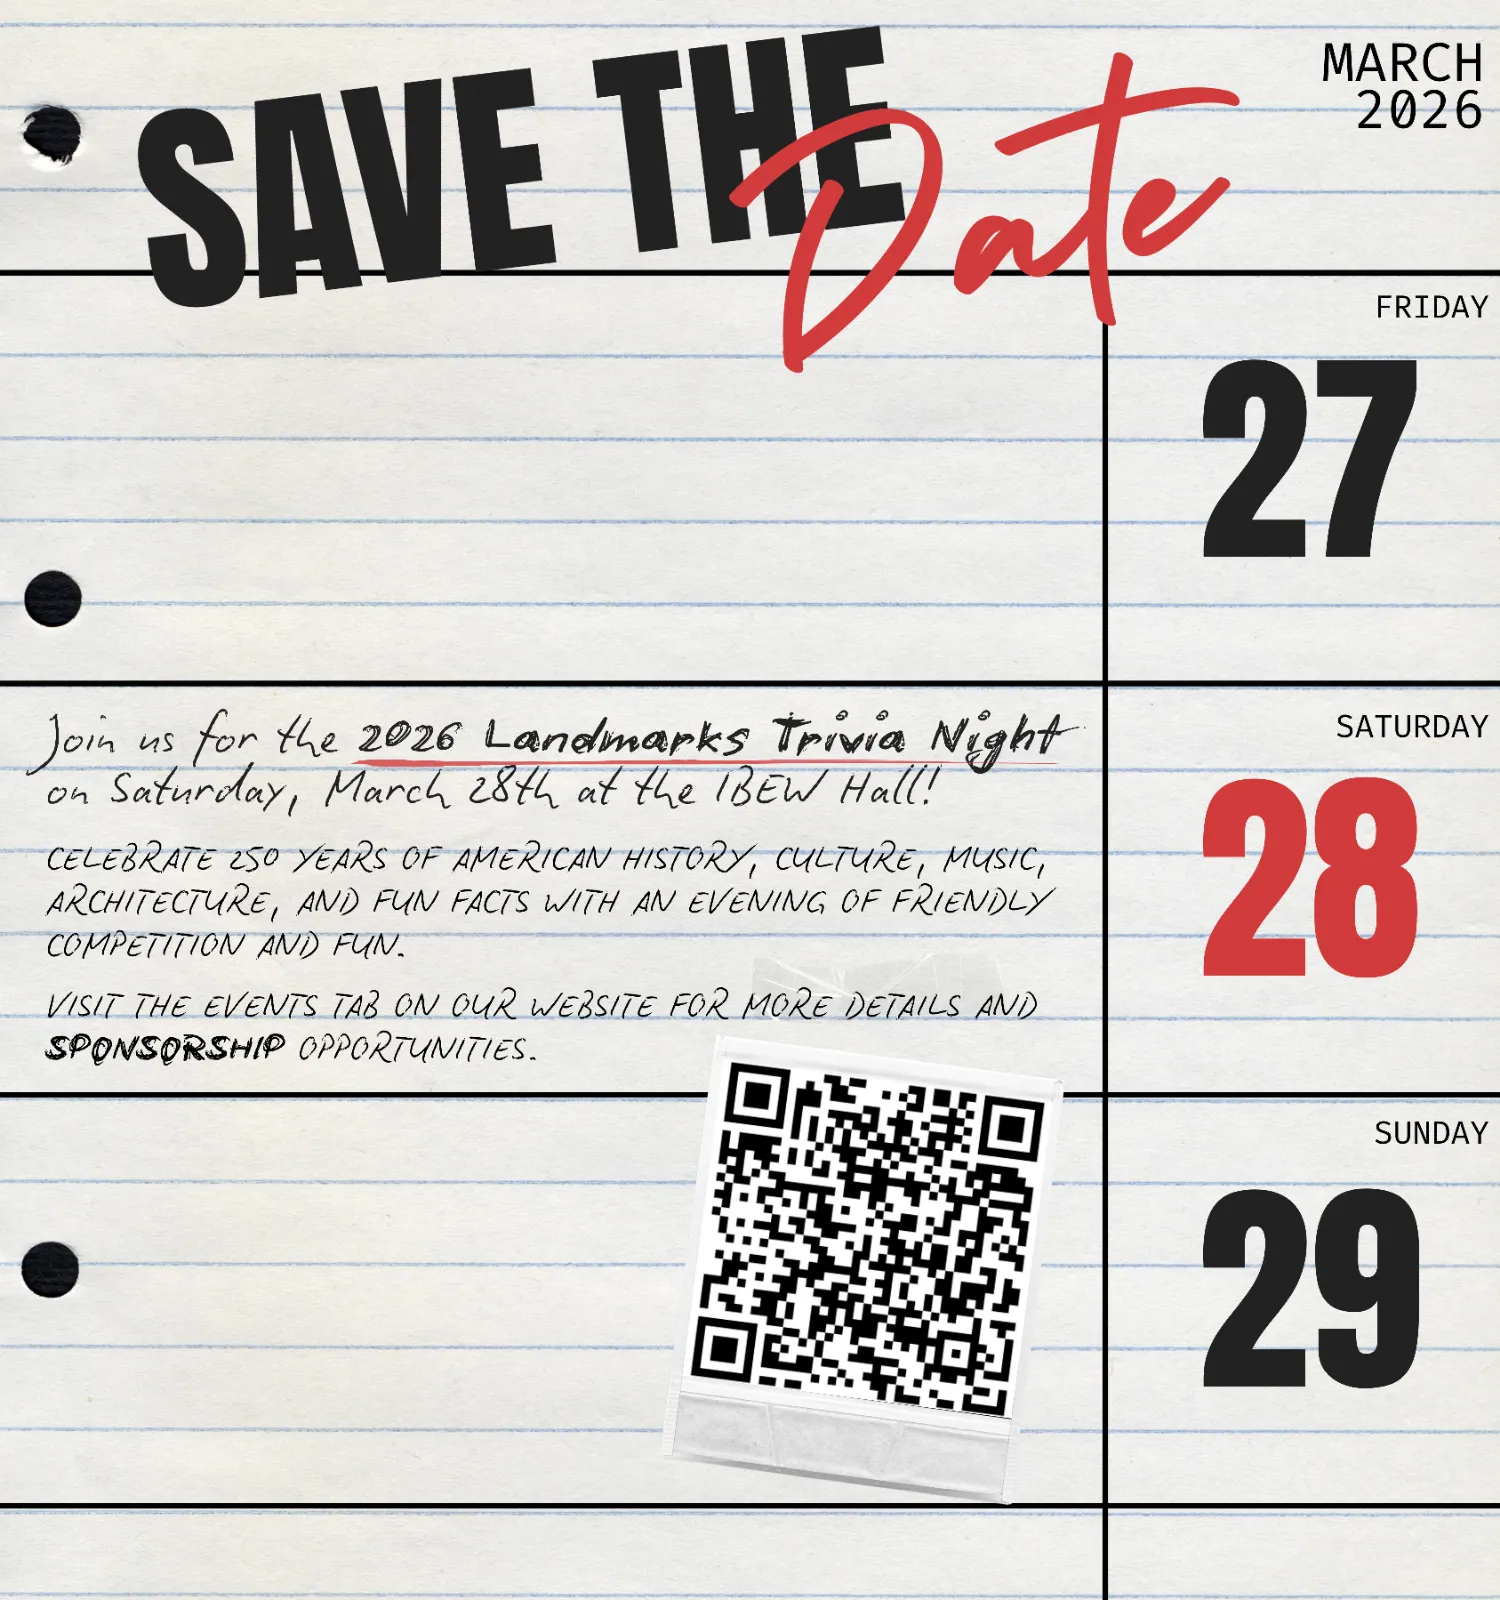 SAVE THE Date
MARCH
2026
FRIDAY
27
SATURDAY
28
Join us for the 2026 Landmarks Trivia Night
on Saturday, March 28th at the IBEW Hall!
CELEBRATE 250 YEARS OF AMERICAN HISTORY, CULTURE, MUSIC,
ARCHITECTURE, AND FUN FACTS WITH AN EVENING OF FRIENDLY
COMPETITION AND FUN.
VISIT THE EVENTS TAB ON OUR WEBSITE FOR MORE DETAILS AND
SPONSORSHIP OPPORTUNITIES.
SUNDAY
29